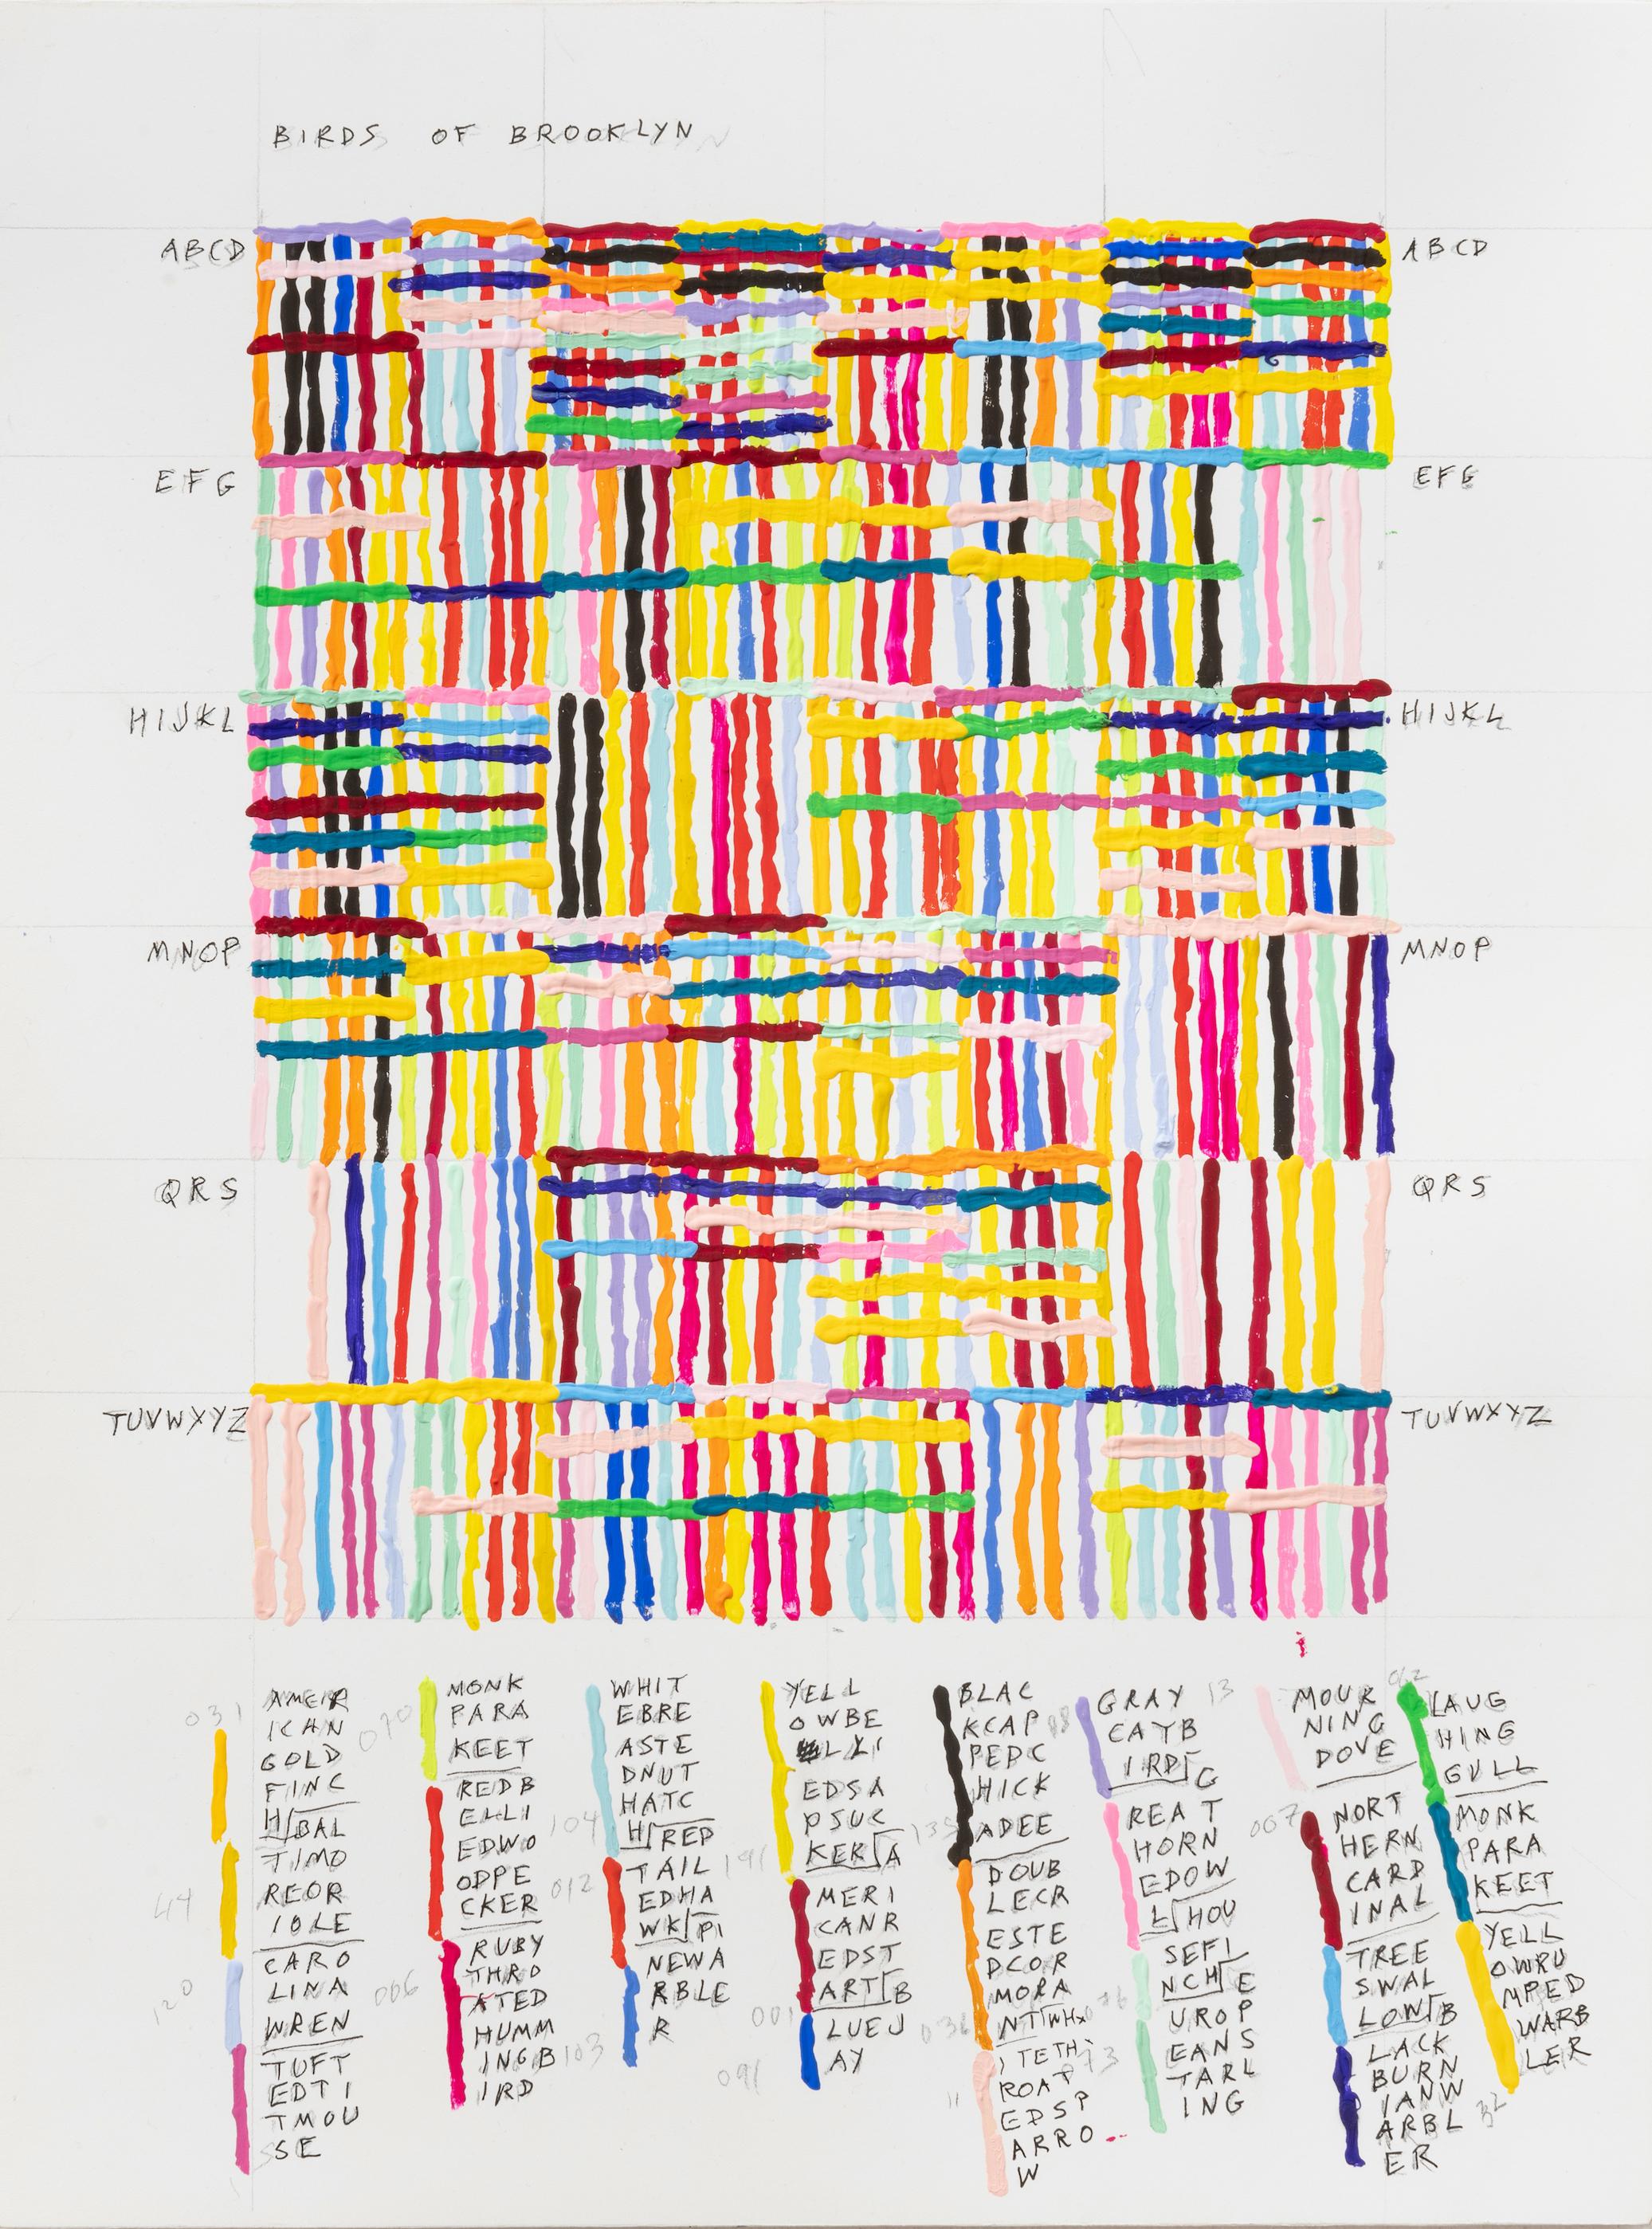 BIRDS OF BROOKLYN
ABCD
ABCD
EFG
EFG
HIJKL
HIJKL
MNOP
MNOP
QRS
QRS
TUVWXYZ
TUVWXYZ
031
AMER
ICAN
GOLD
FINC
H BAL
TIMO
REOR
IOLE
CARO
LINA
WREN
TUFT
EDTI
TMOU
SE
44
120
070
MONK
PARA
KEET
REDB
ELLI
EDWO
ODPE
CKER
RUBY
THRO
ATED
HUMM
INGB
IRD
006
WHIT
EBRE
ASTE
DNUT
HATC
H RED
TAIL
EDHA
WK PI
NEWA
RBLE
R
104
012
103
YELL
OWBE
LLI
EDSA
PSUC
KER A
MERI
CANR
EDST
ART B
LUEJ
AY
191
001
091
BLAC
KCAP
PEDC
HICK
ADEE
DOUB
LECR
ESTE
DCOR
MORA
NT WH
ITETH
ROAT
EDSP
ARRO
W
135
036
11
GRAY
CAYB
IRD G
REAT
HORN
EDOW
L HOU
SEFI
NCH E
UROP
EANS
TARL
ING
13
MOUR
NING
DOVE
NORT
HERN
CARD
INAL
TREE
SWAL
LOW B
LACK
BURN
IANW
ARBL
ER
007
062
LAUG
HING
GULL
MONK
PARA
KEET
YELL
OWRU
MPED
WARB
LER
32